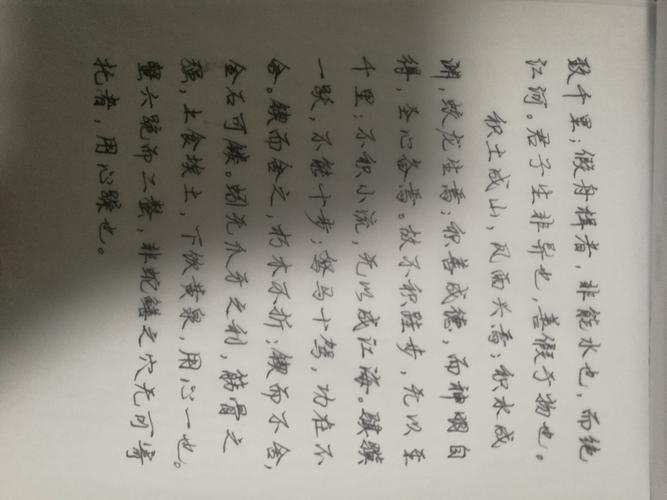 致千里；假舟楫者，非能水也，而绝
江河。君子生非异也，善假于物也。
积土成山，风雨兴焉；积水成
渊，蛟龙生焉；积善成德，而神明自
得，圣心备焉。故不积跬步，无以至
千里；不积小流，无以成江海。骐骥
一跃，不能十步；驽马十驾，功在不
舍。锲而舍之，朽木不折；锲而不舍，
金石可镂。蚓无爪牙之利，筋骨之
强，上食埃土，下饮黄泉，用心一也。
蟹六跪而二螯，非蛇鳝之穴无可寄
托者，用心躁也。